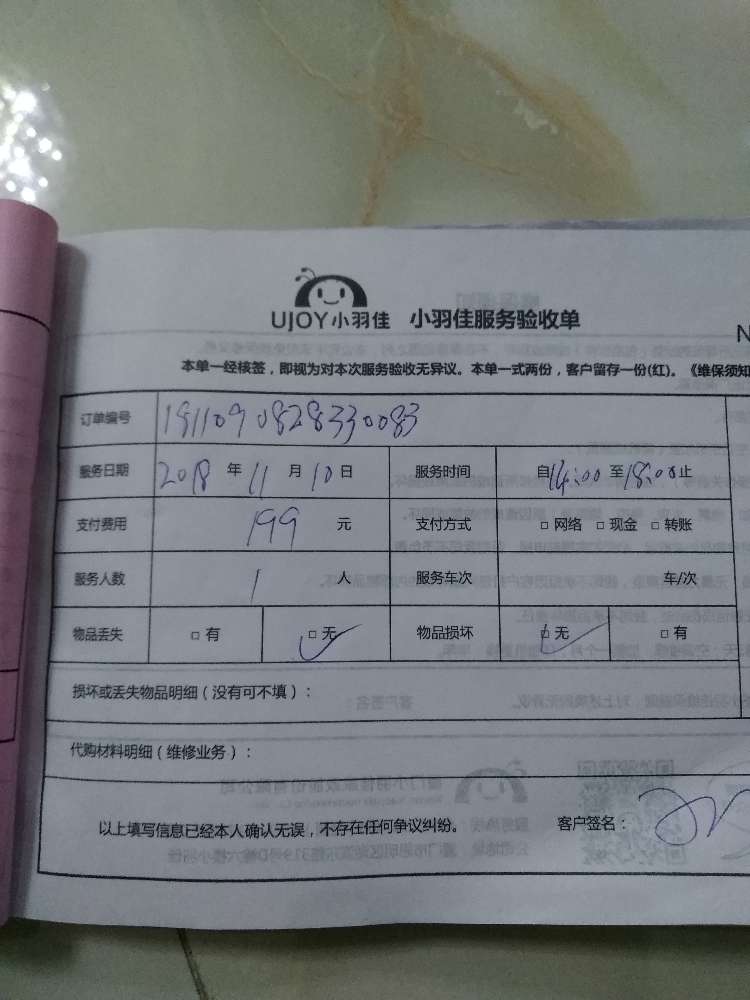 UJOY小羽佳 小羽佳服务验收单
N
本单一经核签，即视为对本次服务验收无异议。本单一式两份，客户留存一份(红)。《维保须知
订单编号 1811090828330083
服务日期 2018 年 11 月 10 日 服务时间 自14:00至18:00止
支付费用 199 元 支付方式 □ 网络 □ 现金 □ 转账
服务人数 1 人 服务车次 车/次
物品丢失 □ 有 □ 无 物品损坏 □ 无 □ 有
损坏或丢失物品明细（没有可不填）：
代购材料明细（维修业务）：
以上填写信息已经本人确认无误，不存在任何争议纠纷。 客户签名：